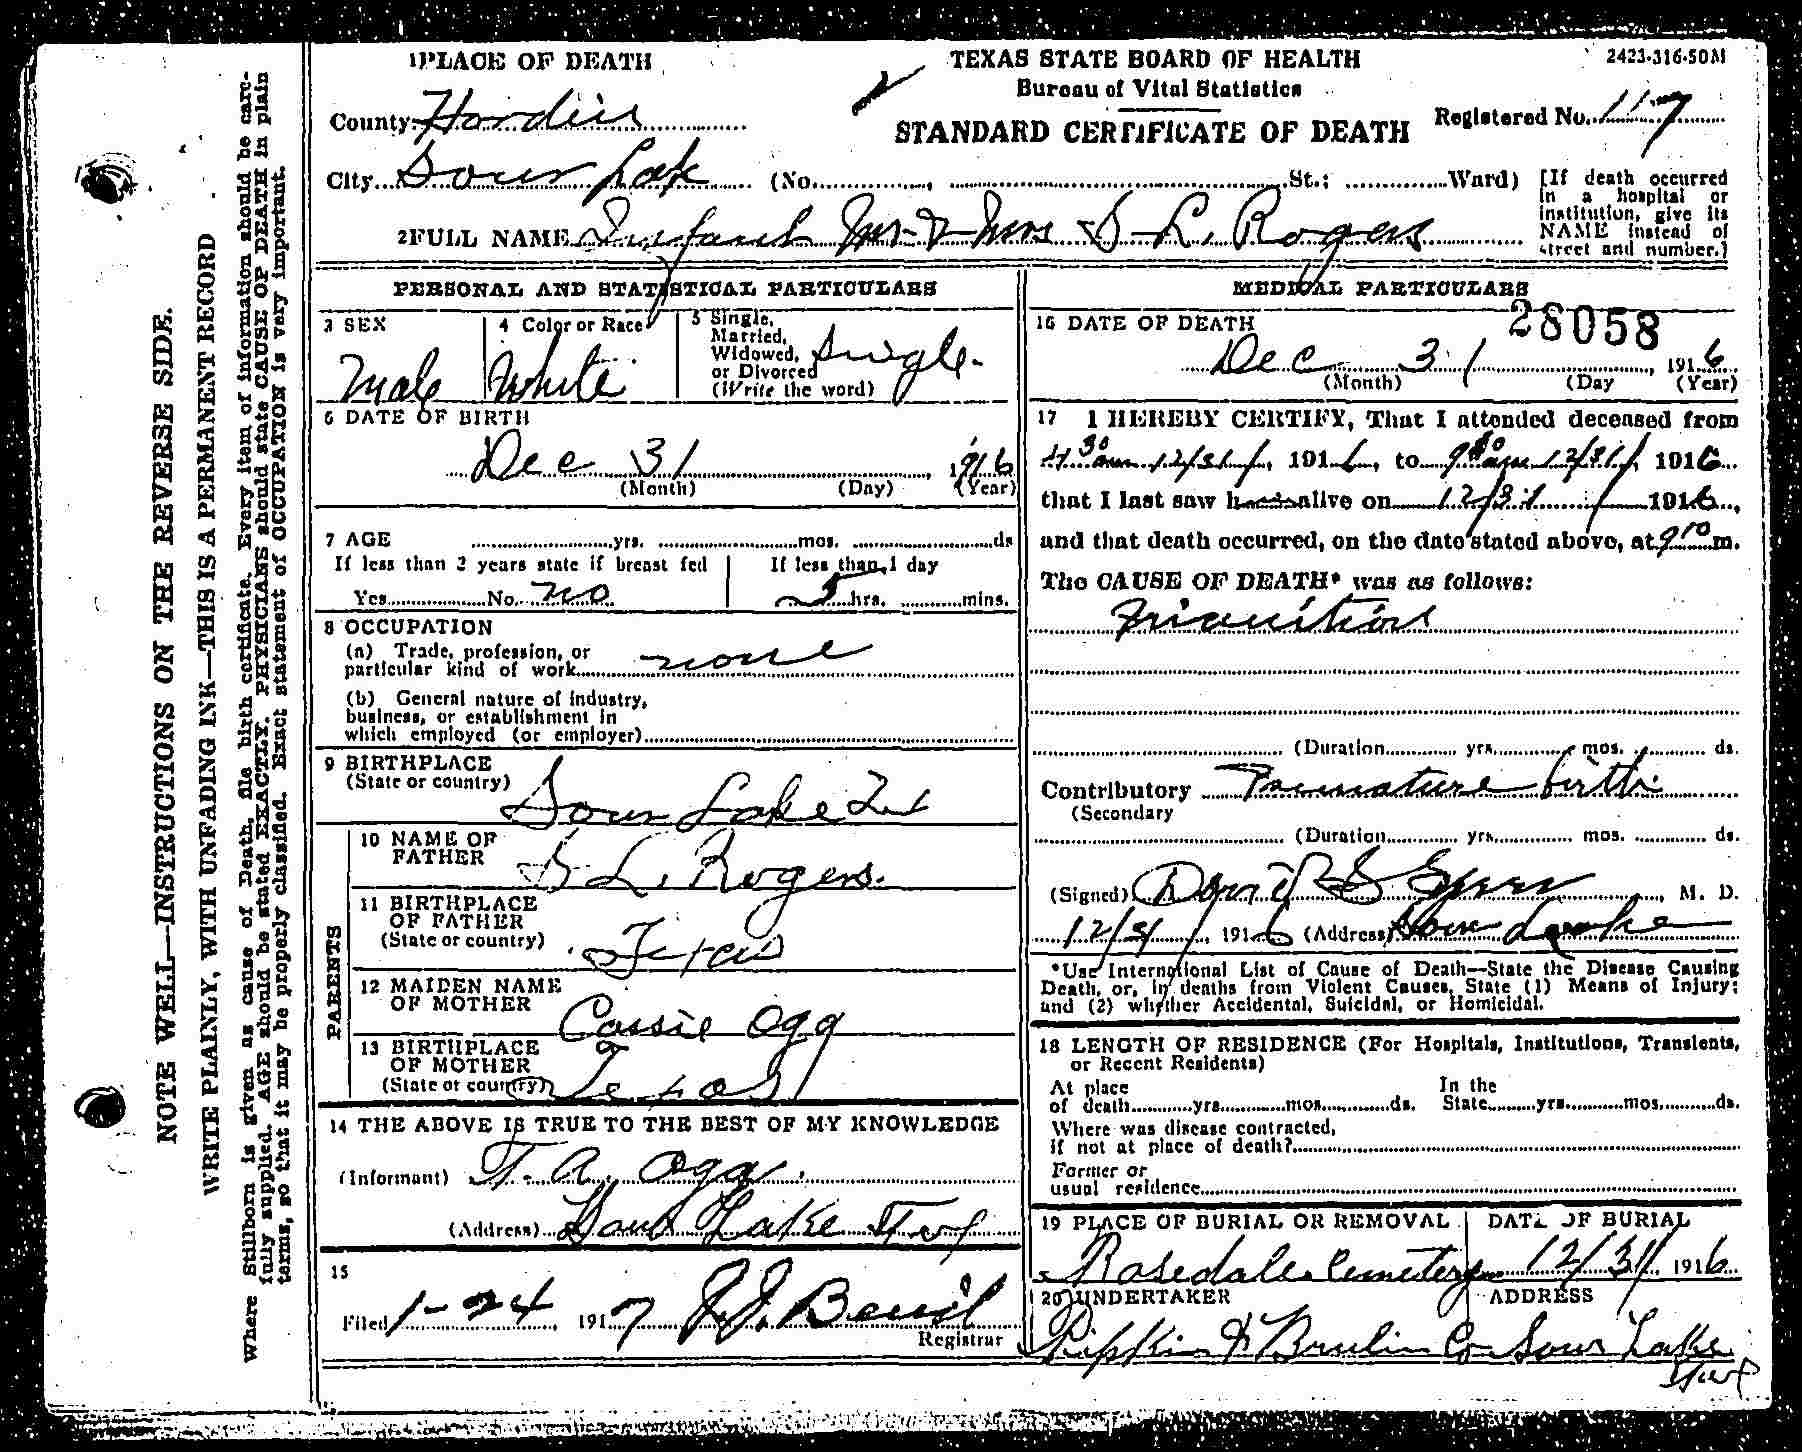 1 PLACE OF DEATH
TEXAS STATE BOARD OF HEALTH
2423-316-50M
Bureau of Vital Statistics
County Hardin
Registered No. 117
STANDARD CERTIFICATE OF DEATH
City Sour Lake (No. , St.; Ward)
[If death occurred
in a hospital or
institution, give its
NAME instead of
street and number.]
2 FULL NAME Infant Mr & Mrs S L. Rogers
PERSONAL AND STATISTICAL PARTICULARS
3 SEX
Male
4 Color or Race
White
5 Single,
Married,
Widowed,
or Divorced
(Write the word)
Single.
6 DATE OF BIRTH
Dec 31 1916
(Month) (Day) (Year)
7 AGE yrs. mos. ds
If less than 2 years state if breast fed
Yes No. no
If less than 1 day
5 hrs. mins.
8 OCCUPATION
(a) Trade, profession, or
particular kind of work none
(b) General nature of industry,
business, or establishment in
which employed (or employer)
9 BIRTHPLACE
(State or country)
Sour Lake Tex
PARENTS
10 NAME OF
FATHER
S L. Rogers.
11 BIRTHPLACE
OF FATHER
(State or country)
Texas
12 MAIDEN NAME
OF MOTHER
Cassie Ogg
13 BIRTHPLACE
OF MOTHER
(State or country)
Texas
14 THE ABOVE IS TRUE TO THE BEST OF MY KNOWLEDGE
(Informant) T. A. Ogg.
(Address) Sour Lake Tex
15
Filed 1-24, 1917
Registrar
MEDICAL PARTICULARS
28058
16 DATE OF DEATH
Dec 31, 1916
(Month) (Day (Year)
17 I HEREBY CERTIFY, That I attended deceased from
4 30 am 12/31/, 1916, to 9 am 12/31/, 1916
that I last saw h alive on 12/31/ 1916,
and that death occurred, on the date stated above, at 9 10 m.
The CAUSE OF DEATH* was as follows:
Inanition
(Duration yrs. mos. ds.
Contributory Premature birth
(Secondary
(Duration yrs. mos. ds.
(Signed), M. D.
12/31/, 1916 (Address) Sour Lake
*Use International List of Cause of Death--State the Disease Causing
Death, or, in deaths from Violent Causes, State (1) Means of Injury;
and (2) whether Accidental, Suicidal, or Homicidal.
18 LENGTH OF RESIDENCE (For Hospitals, Institutions, Transients,
or Recent Residents)
At place
of death yrs. mos. ds.
In the
State yrs. mos. ds.
Where was disease contracted,
if not at place of death?
Former or
usual residence
19 PLACE OF BURIAL OR REMOVAL
Rosedale Cemetery
DATE OF BURIAL
12/31/, 1916
20 UNDERTAKER
Pipkin & Brulin Co
ADDRESS
Sour Lake
Tex
NOTE WELL—INSTRUCTIONS ON THE REVERSE SIDE.
WRITE PLAINLY, WITH UNFADING INK—THIS IS A PERMANENT RECORD
Where Stillborn is given as cause of Death, file birth certificate. Every item of information should be care-
fully supplied. AGE should be stated EXACTLY. PHYSICIANS should state CAUSE OF DEATH in plain
terms, so that it may be properly classified. Exact statement of OCCUPATION is very important.